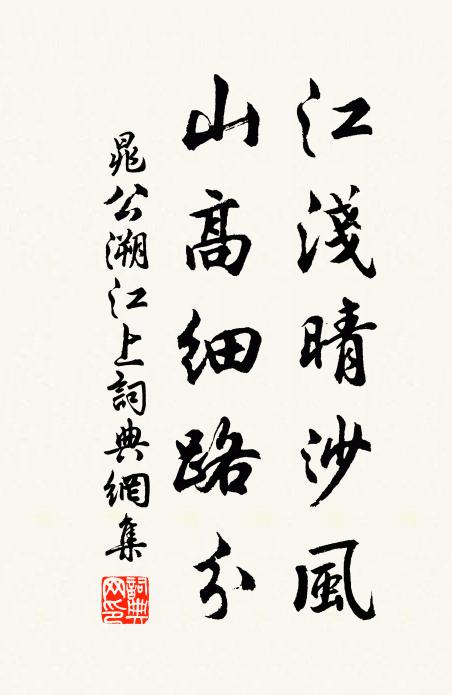 江淺晴沙風
山高細路分
晁公溯江上詞典網集
詞典
网印